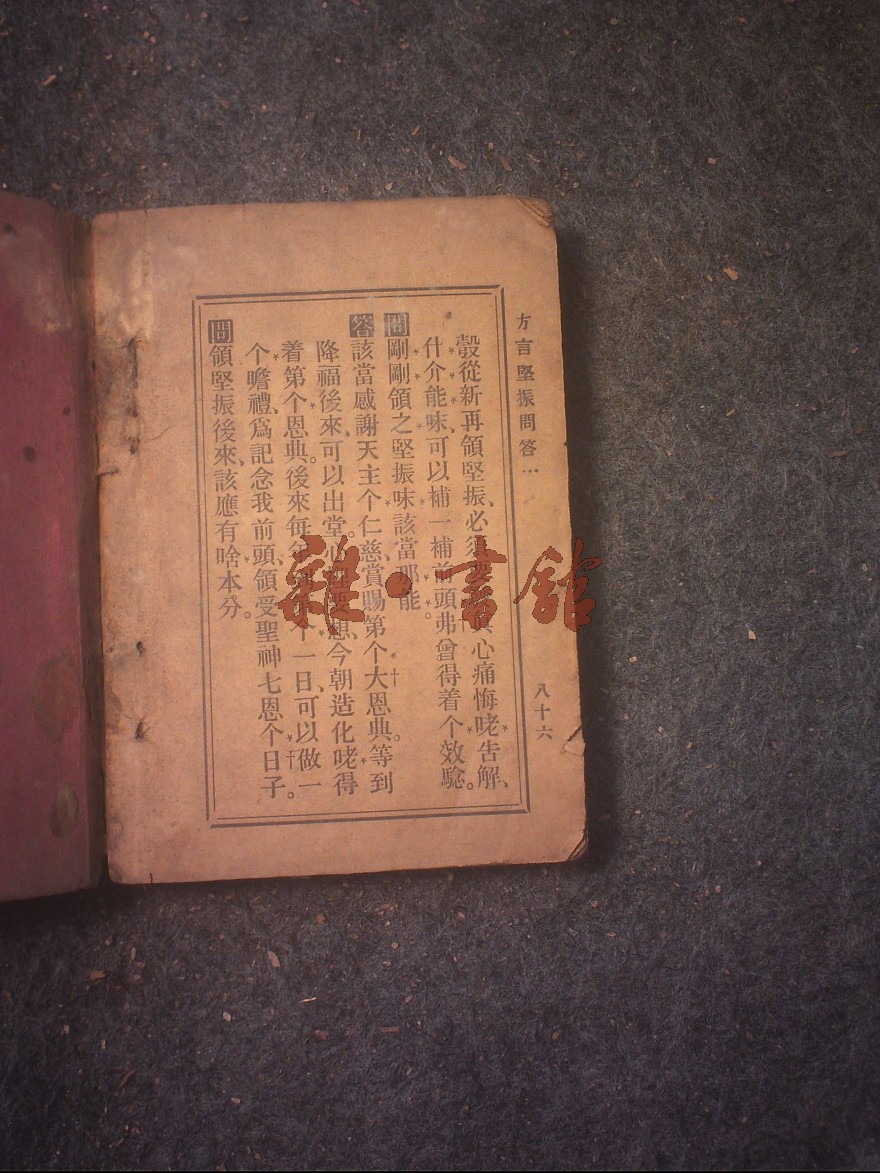 方言堅振問答 八十六
彀從新再領堅振、必須要 真心痛悔咾告解、
什介能味、可以補一補前頭弗曾得着个效騐。
問剛剛領之堅振味該當那能
答該當感謝天主个仁慈、賞賜第个大恩典。等到
降福後來、可以出堂。心 要想、今朝造化咾得
着第个恩典。後來每年 第个一日、可以做一
个瞻禮、爲記念我前頭、領受聖神七恩个日子。
問領堅振後來、該應有啥本分。
雜·書館